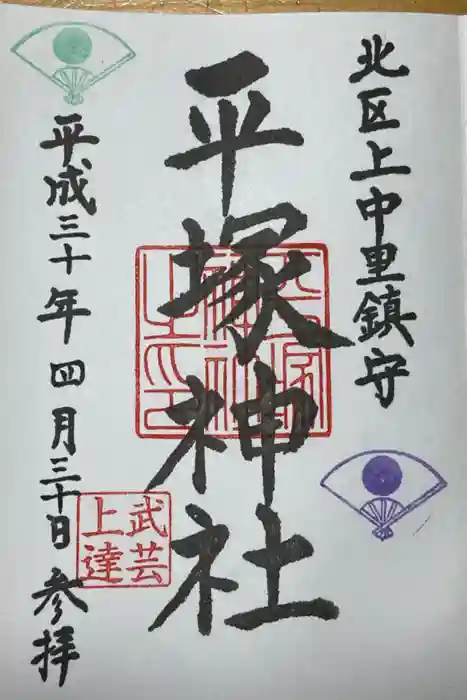 北区上中里鎮守
平塚神社
平塚神社之印
武芸上達
平成三十年四月三十日参拝